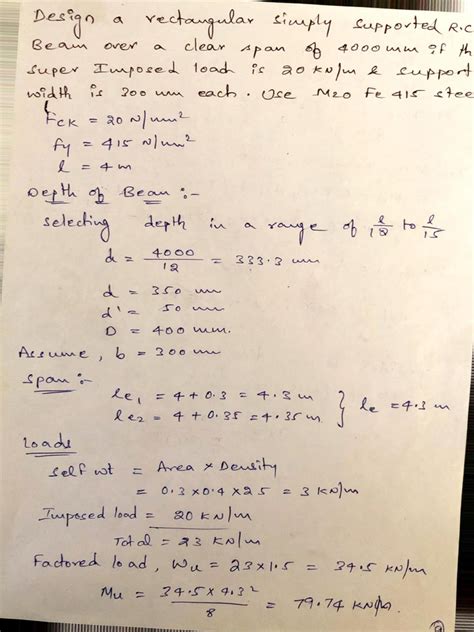 Design a rectangular simply supported R.C
Beam over a clear span of 4000 mm if th
super Imposed load is 20 kN/m & support
width is 300 mm each. Use M20 Fe 415 stee
Fck = 20 N/mm²
fy = 415 N/mm²
l = 4 m
Depth of Beam :-
selecting depth in a range of l/12 to l/15
d = 4000/12 = 333.3 mm
d = 350 mm
d' = 50 mm
D = 400 mm.
Assume, b = 300 mm
Span :-
le₁ = 4 + 0.3 = 4.3 m
le₂ = 4 + 0.35 = 4.35 m } le = 4.3 m
Loads
Self wt = Area × Density
= 0.3 × 0.4 × 25 = 3 kN/m
Imposed load = 20 kN/m
Total = 23 kN/m
Factored load, Wu = 23 × 1.5 = 34.5 kN/m
Mu = 34.5 × 4.3²/8 = 79.74 kN/m.